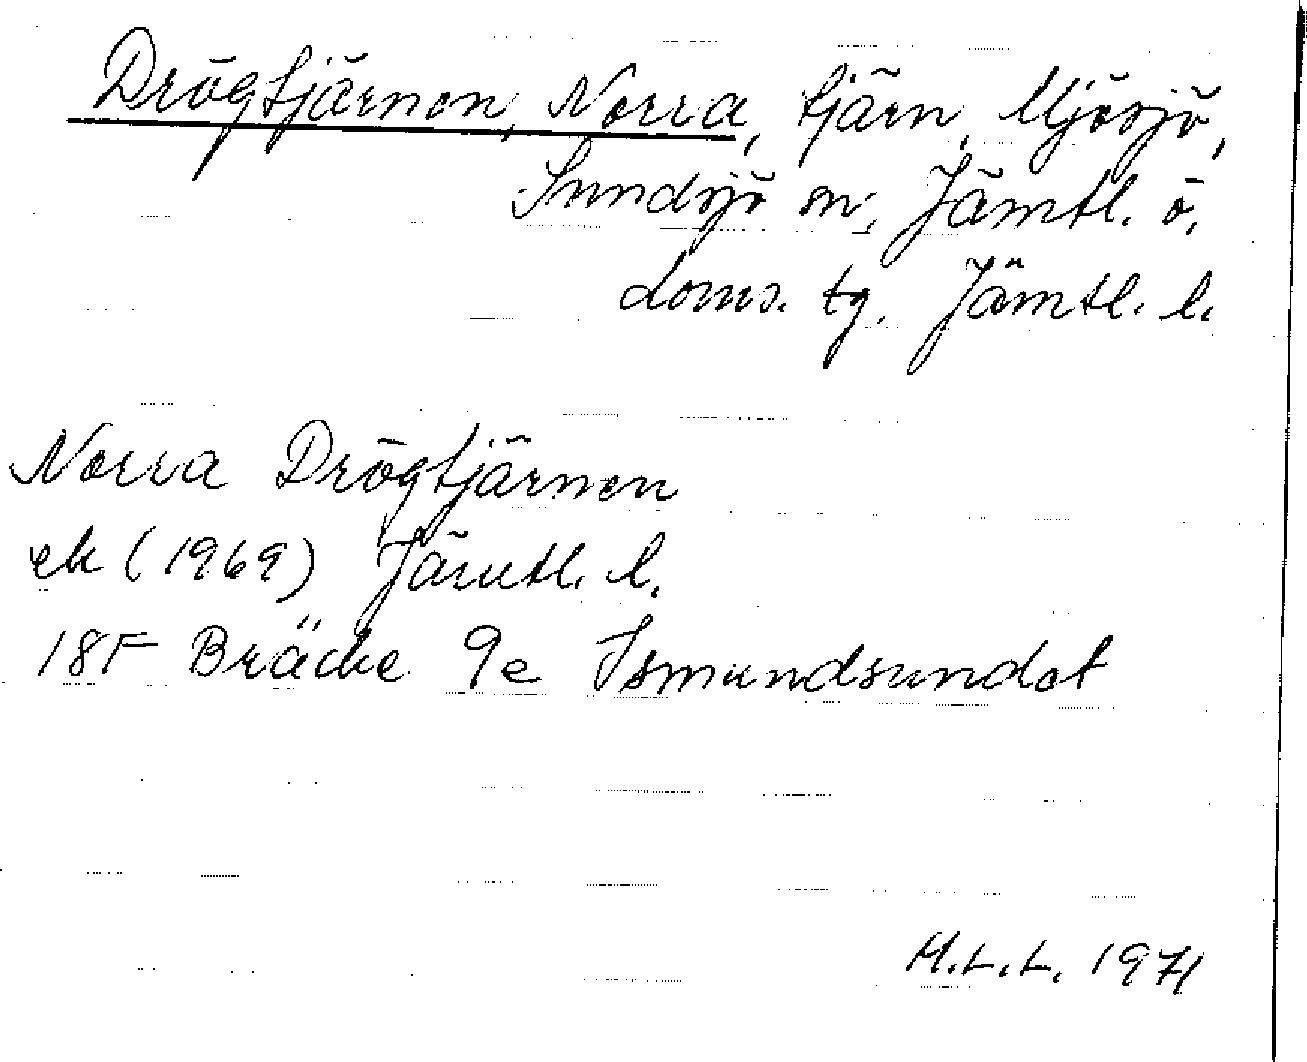 Drögtjärnen, Norra, tjärn, Mjösjö,
Sundsjö sn, Jämtl. ö.
doms. tg. Jämtl. l.
Norra Drögtjärnen
ek (1969) Jämtl. l.
18F Bräcke 9e Ismundsundet
M.L.L. 1971